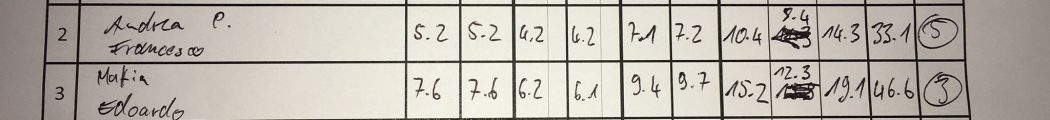 2 Andrea P. Francesco 5.2 5.2 4.2 4.2 7.1 7.2 10.4 9.4 14.3 33.1 5
3 Maria Edoardo 7.6 7.6 6.2 6.1 9.4 9.7 15.2 12.3 19.1 46.6 3